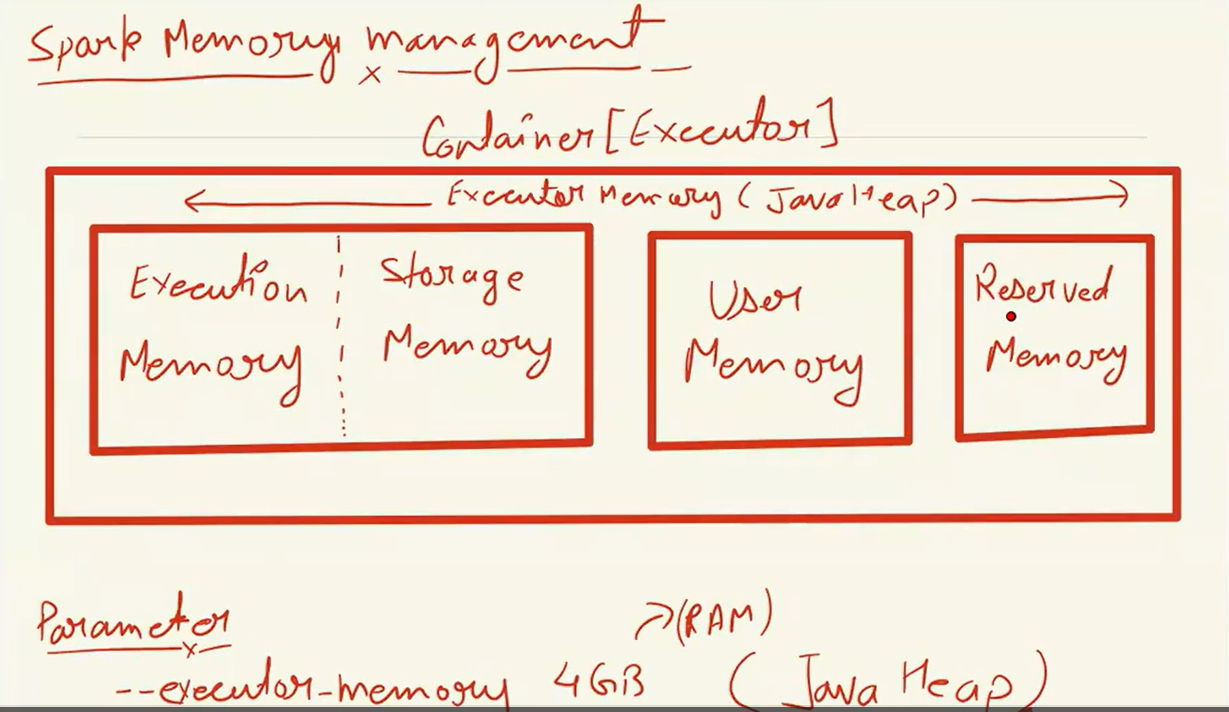 Spark Memory management
Container [Executor]
Executor Memory (Java Heap)
Execution
Memory
Storage
Memory
User
Memory
Reserved
Memory
Parameter
(RAM)
--executor-memory 4GB (Java Heap)